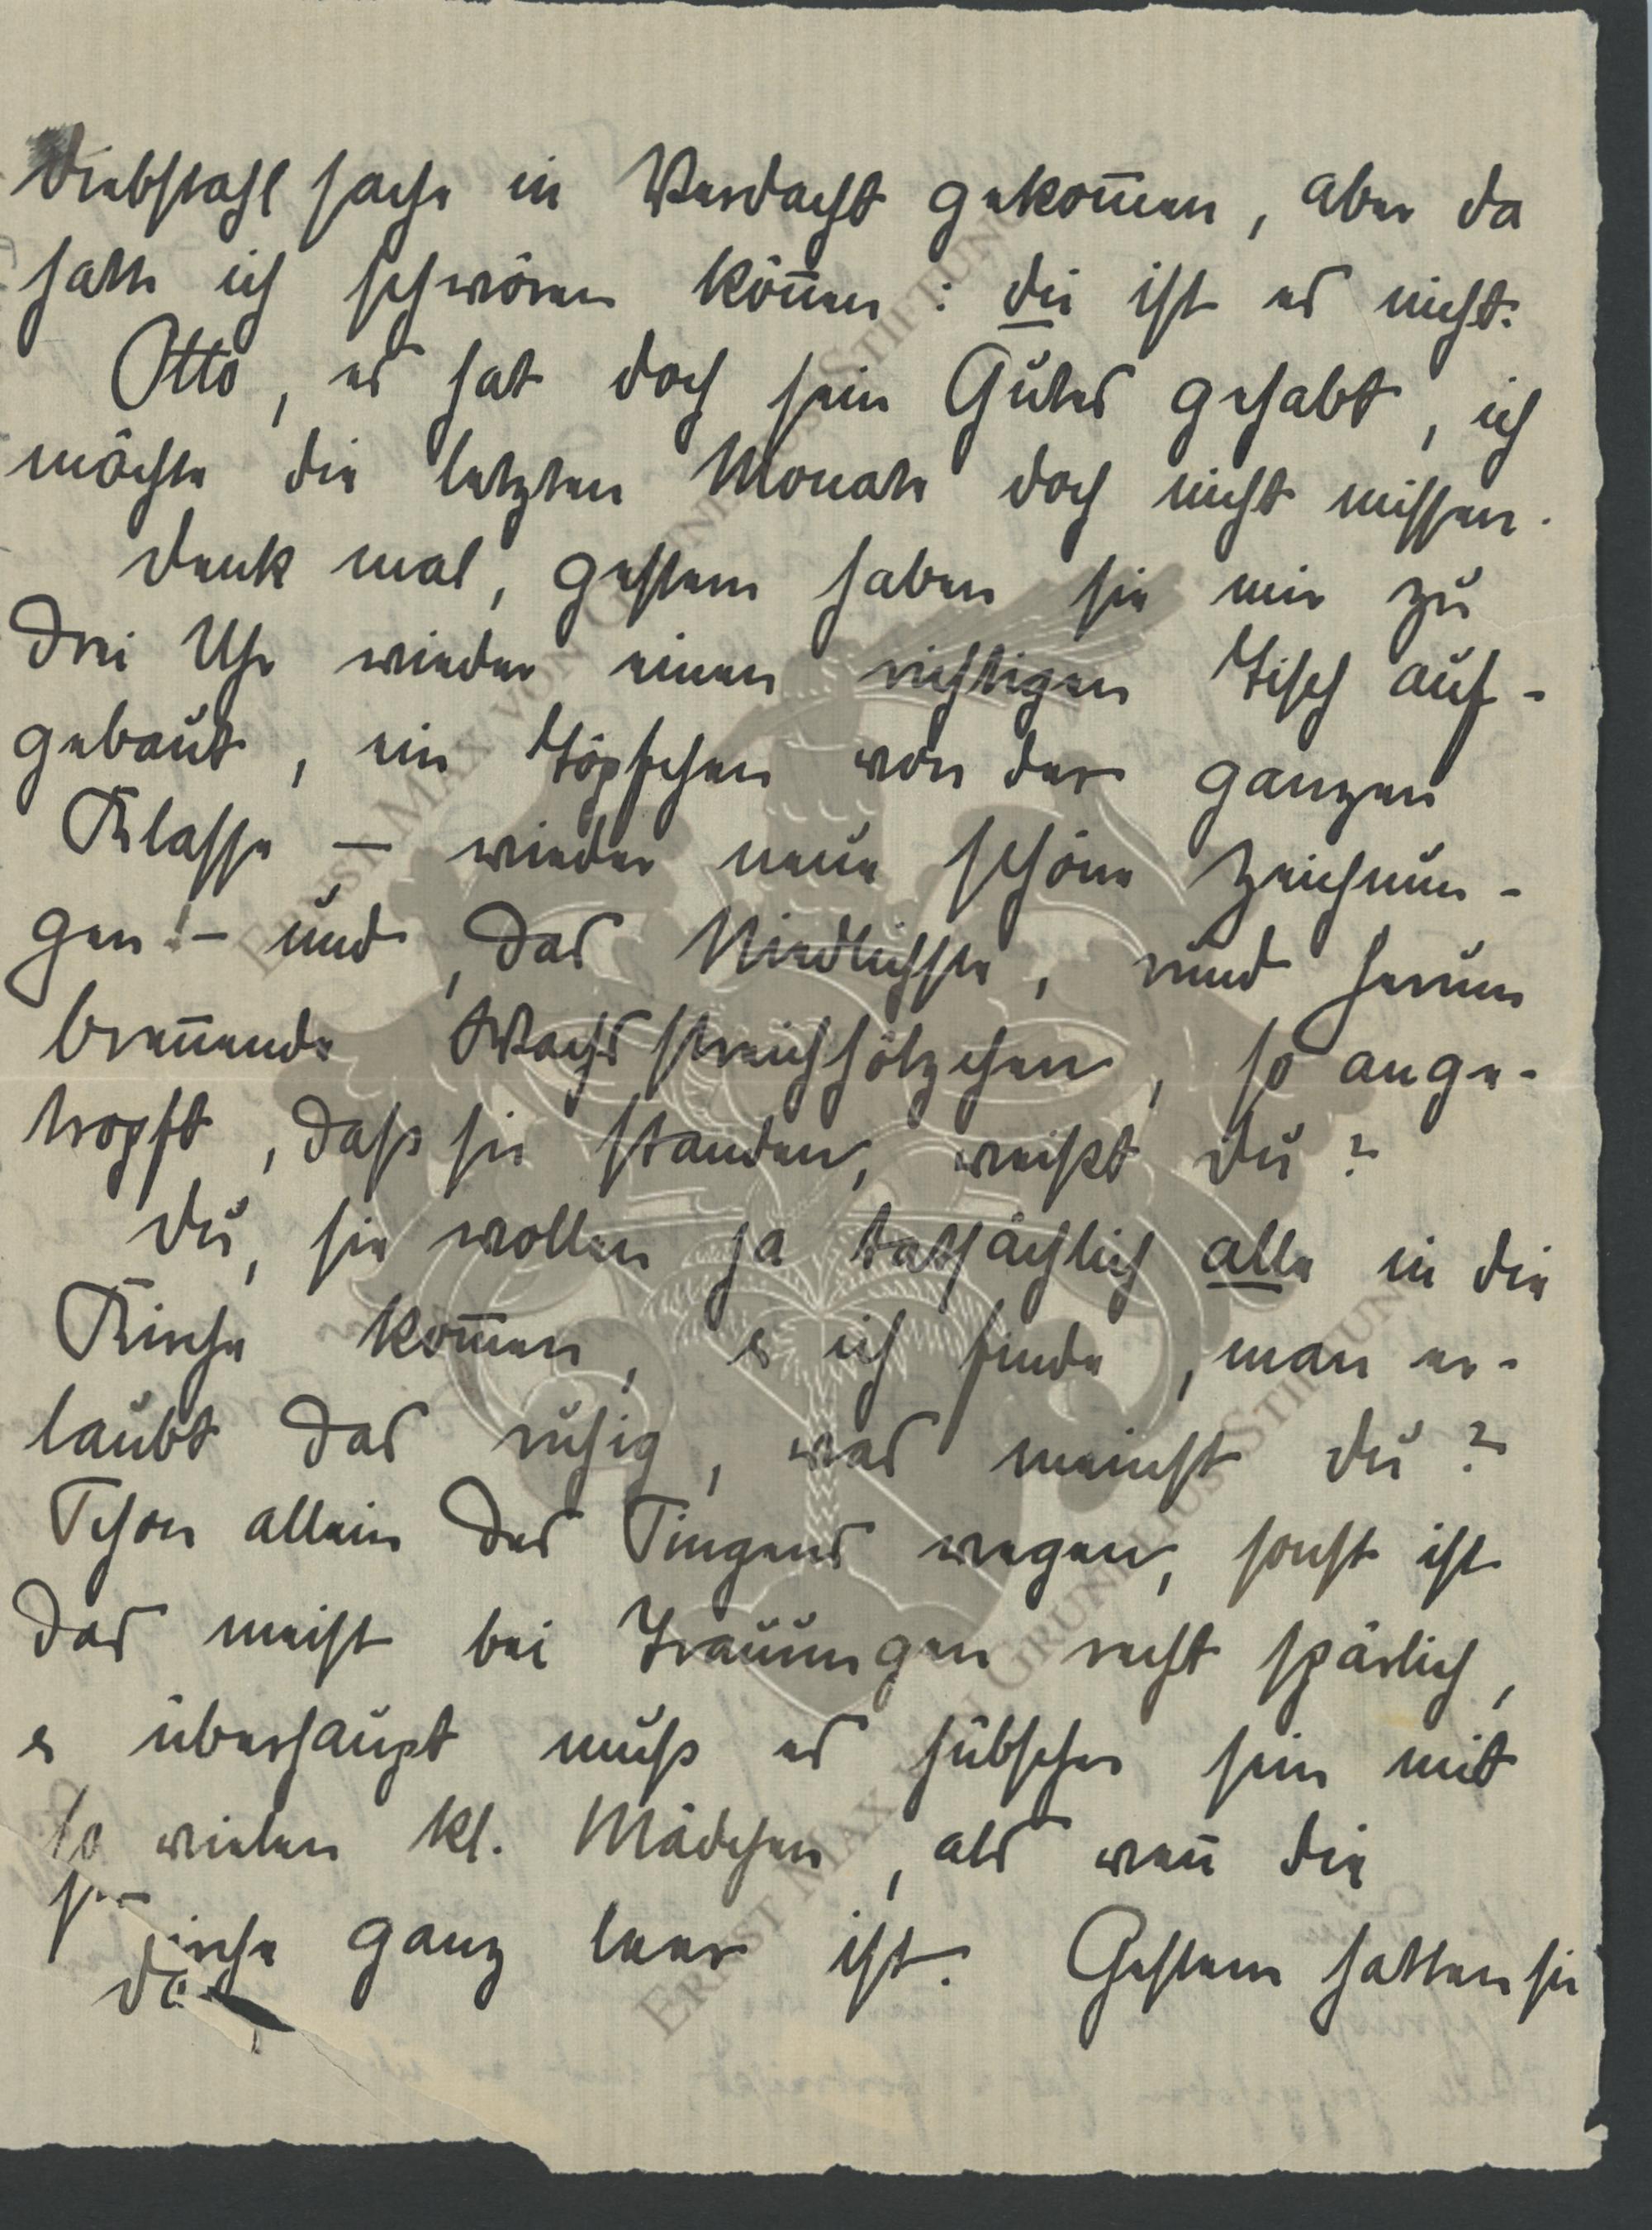 Diebstahlsache in Verdacht gekom̅en, aber da
hätte ich schwören kön̅en: die ist es nicht.
Otto, es hat doch sein Gutes gehabt, ich
möchte die letzten Monate doch nicht missen.
Denk mal, gestern haben sie mir zu
drei Uhr wieder einen richtigen Tisch auf-
gebaut, ein Töpfchen von der ganzen
Klasse – wieder neue schöne Zeichnun-
gen! – und, das Niedlichste, rund herum
bren̅ende Wachsstreichhölzchen, so ange-
tropft, daß sie standen, weißt Du?
Du, sie wollen ja tatsächlich alle in die
Kirche kom̅en, ich finde, man er-
laubt das ruhig, was meinst Du?
Schon allein des Singens wegen, sonst ist
das meist bei Trauungen recht spärlich,
überhaupt muß es hübscher sein mit
so vielen kl. Mädchen, als wen̅ die
ganz leer ist. Gestern hatten sie
ERNST MAX VON GRUNELIUS STIFTUNG
ERNST MAX VON GRUNELIUS STIFTUNG